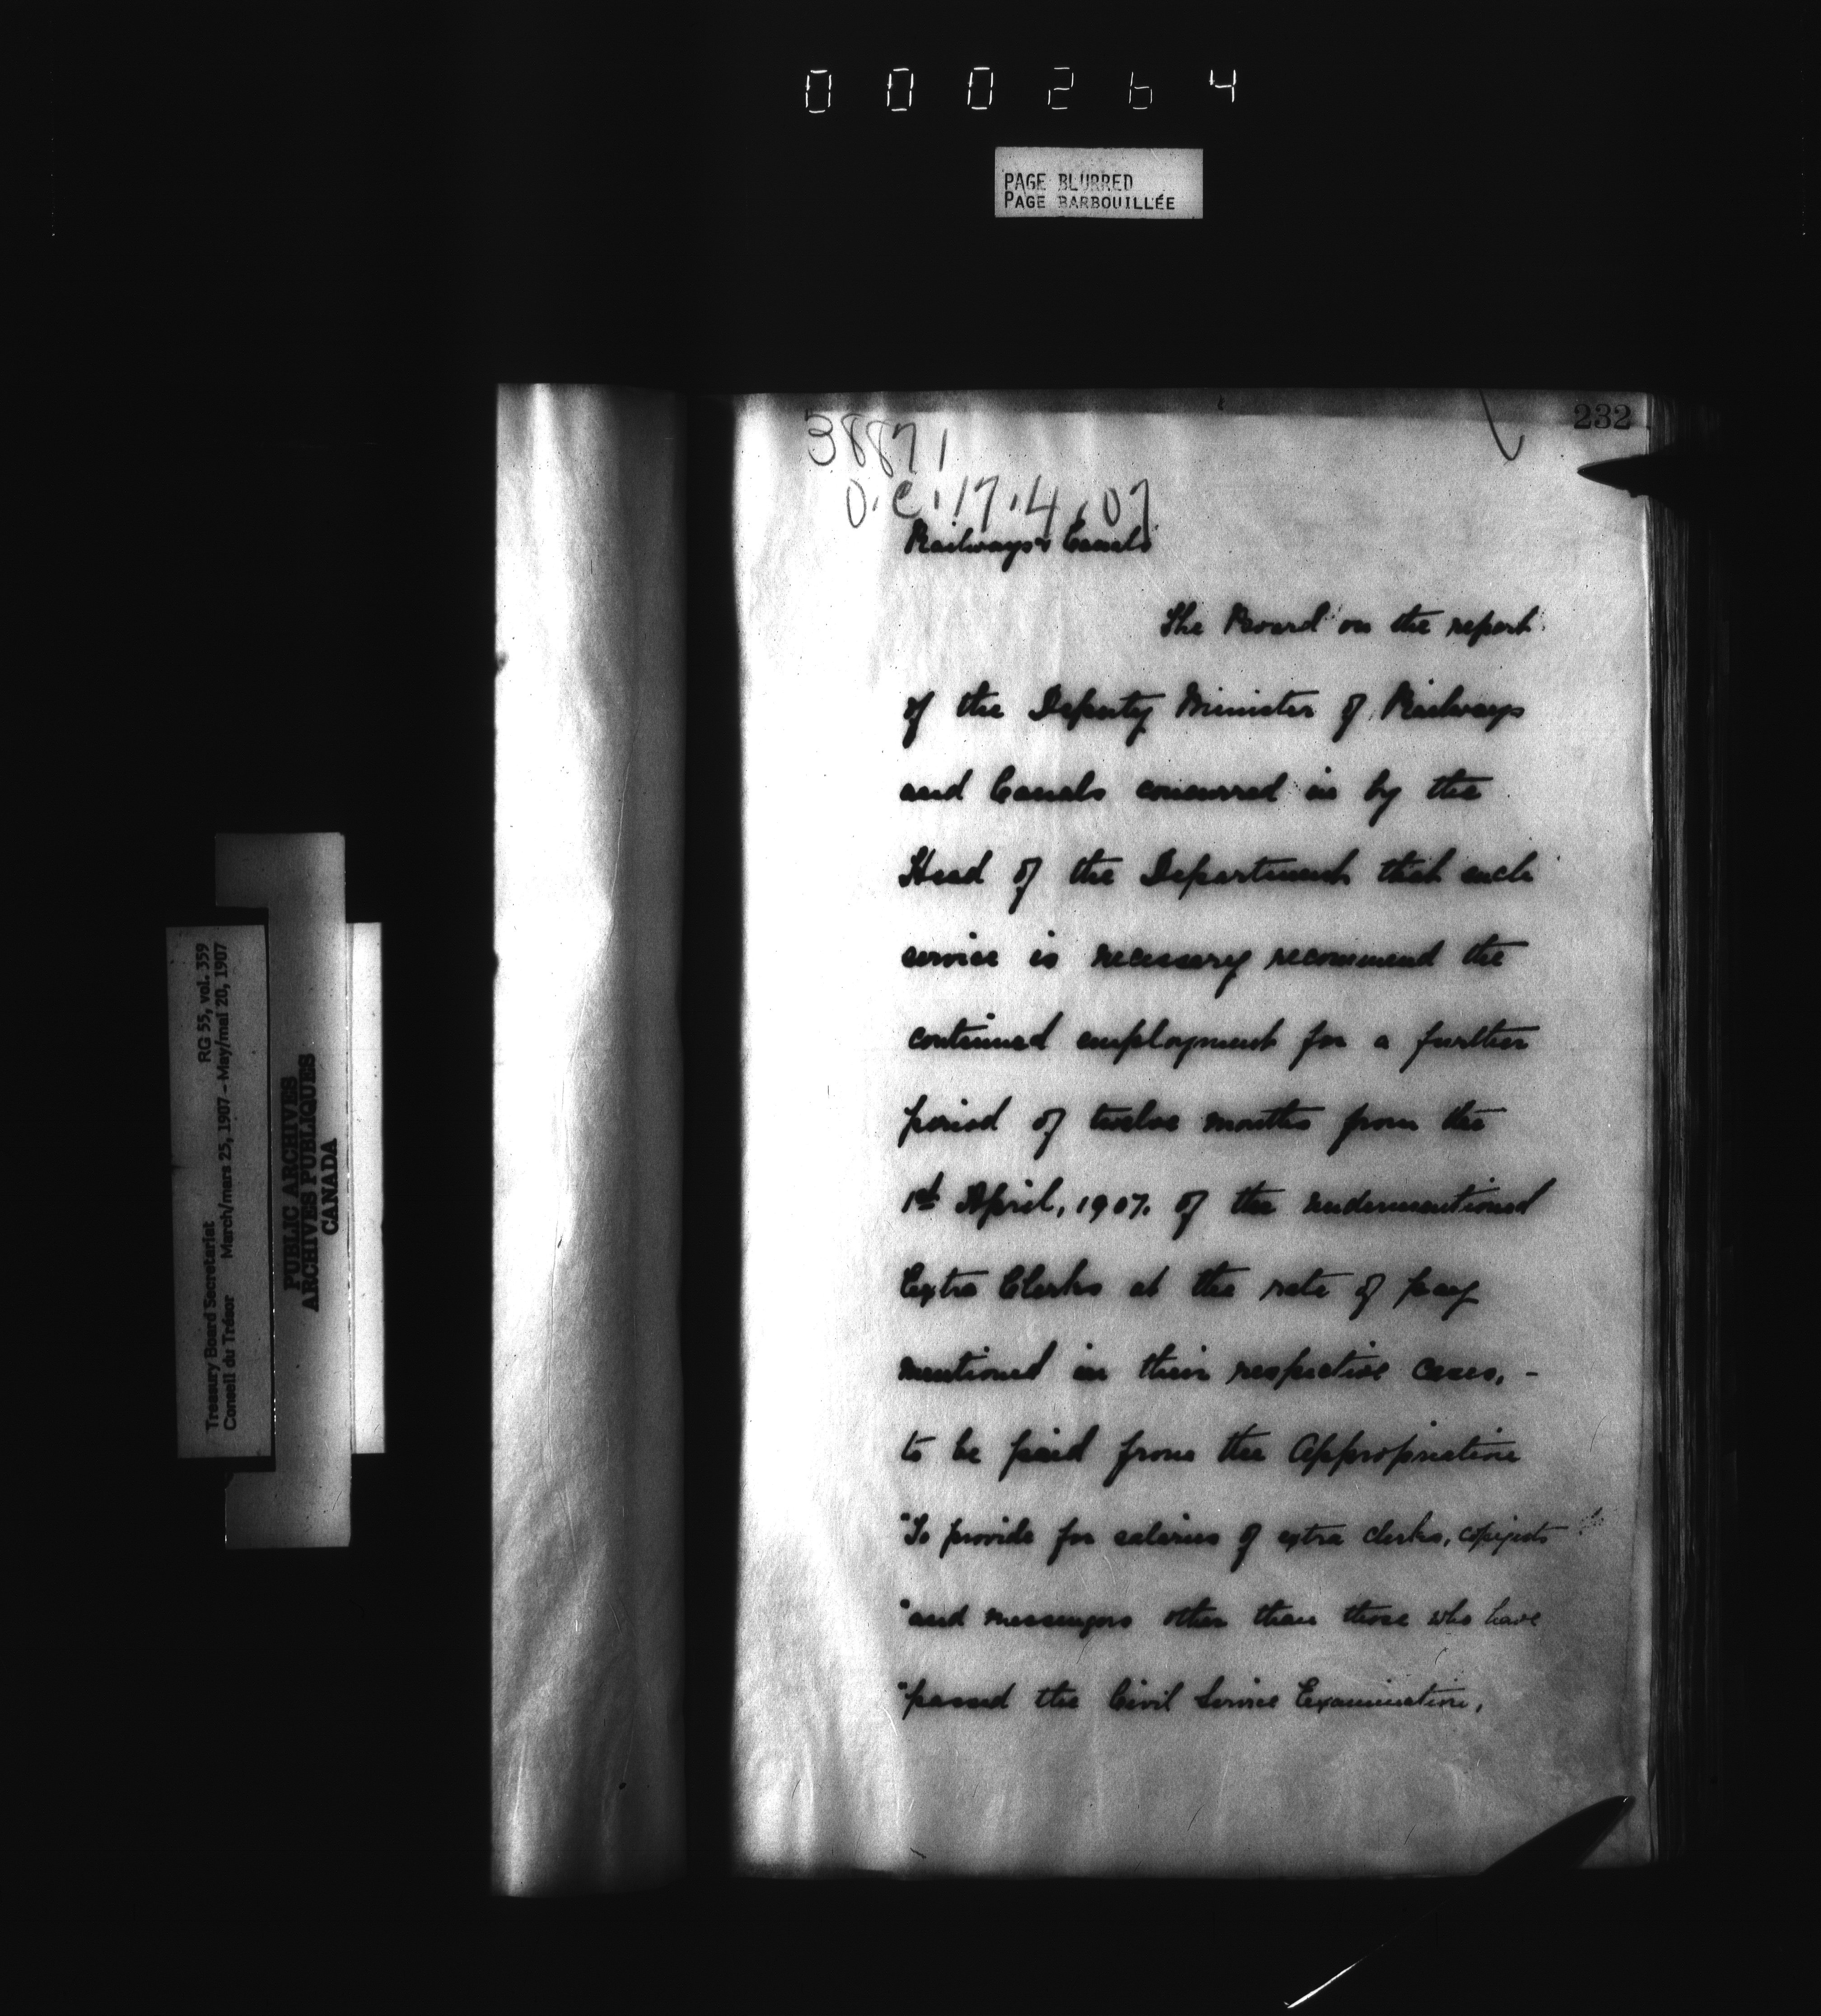 000264
PAGE BLURRED
PAGE BARBOUILLÉE
232
38871
O.C. 17.4.07
Railways & Canals
The Board on the report
of the Deputy Minister of Railways
and Canals concurred in by the
Head of the Department that such
service is necessary recommend the
continued employment for a further
period of twelve months from the
1st April, 1907. of the undermentioned
Extra Clerks at the rate of pay
mentioned in their respective cases, -
to be paid from the Appropriation
"To provide for salaries of extra clerks, copyists
"and messengers other than those who have
"passed the Civil Service Examination,
Treasury Board Secretariat RG 55, vol. 359
Conseil du Trésor March/mars 25, 1907 - May/mai 20, 1907
PUBLIC ARCHIVES
ARCHIVES PUBLIQUES
CANADA